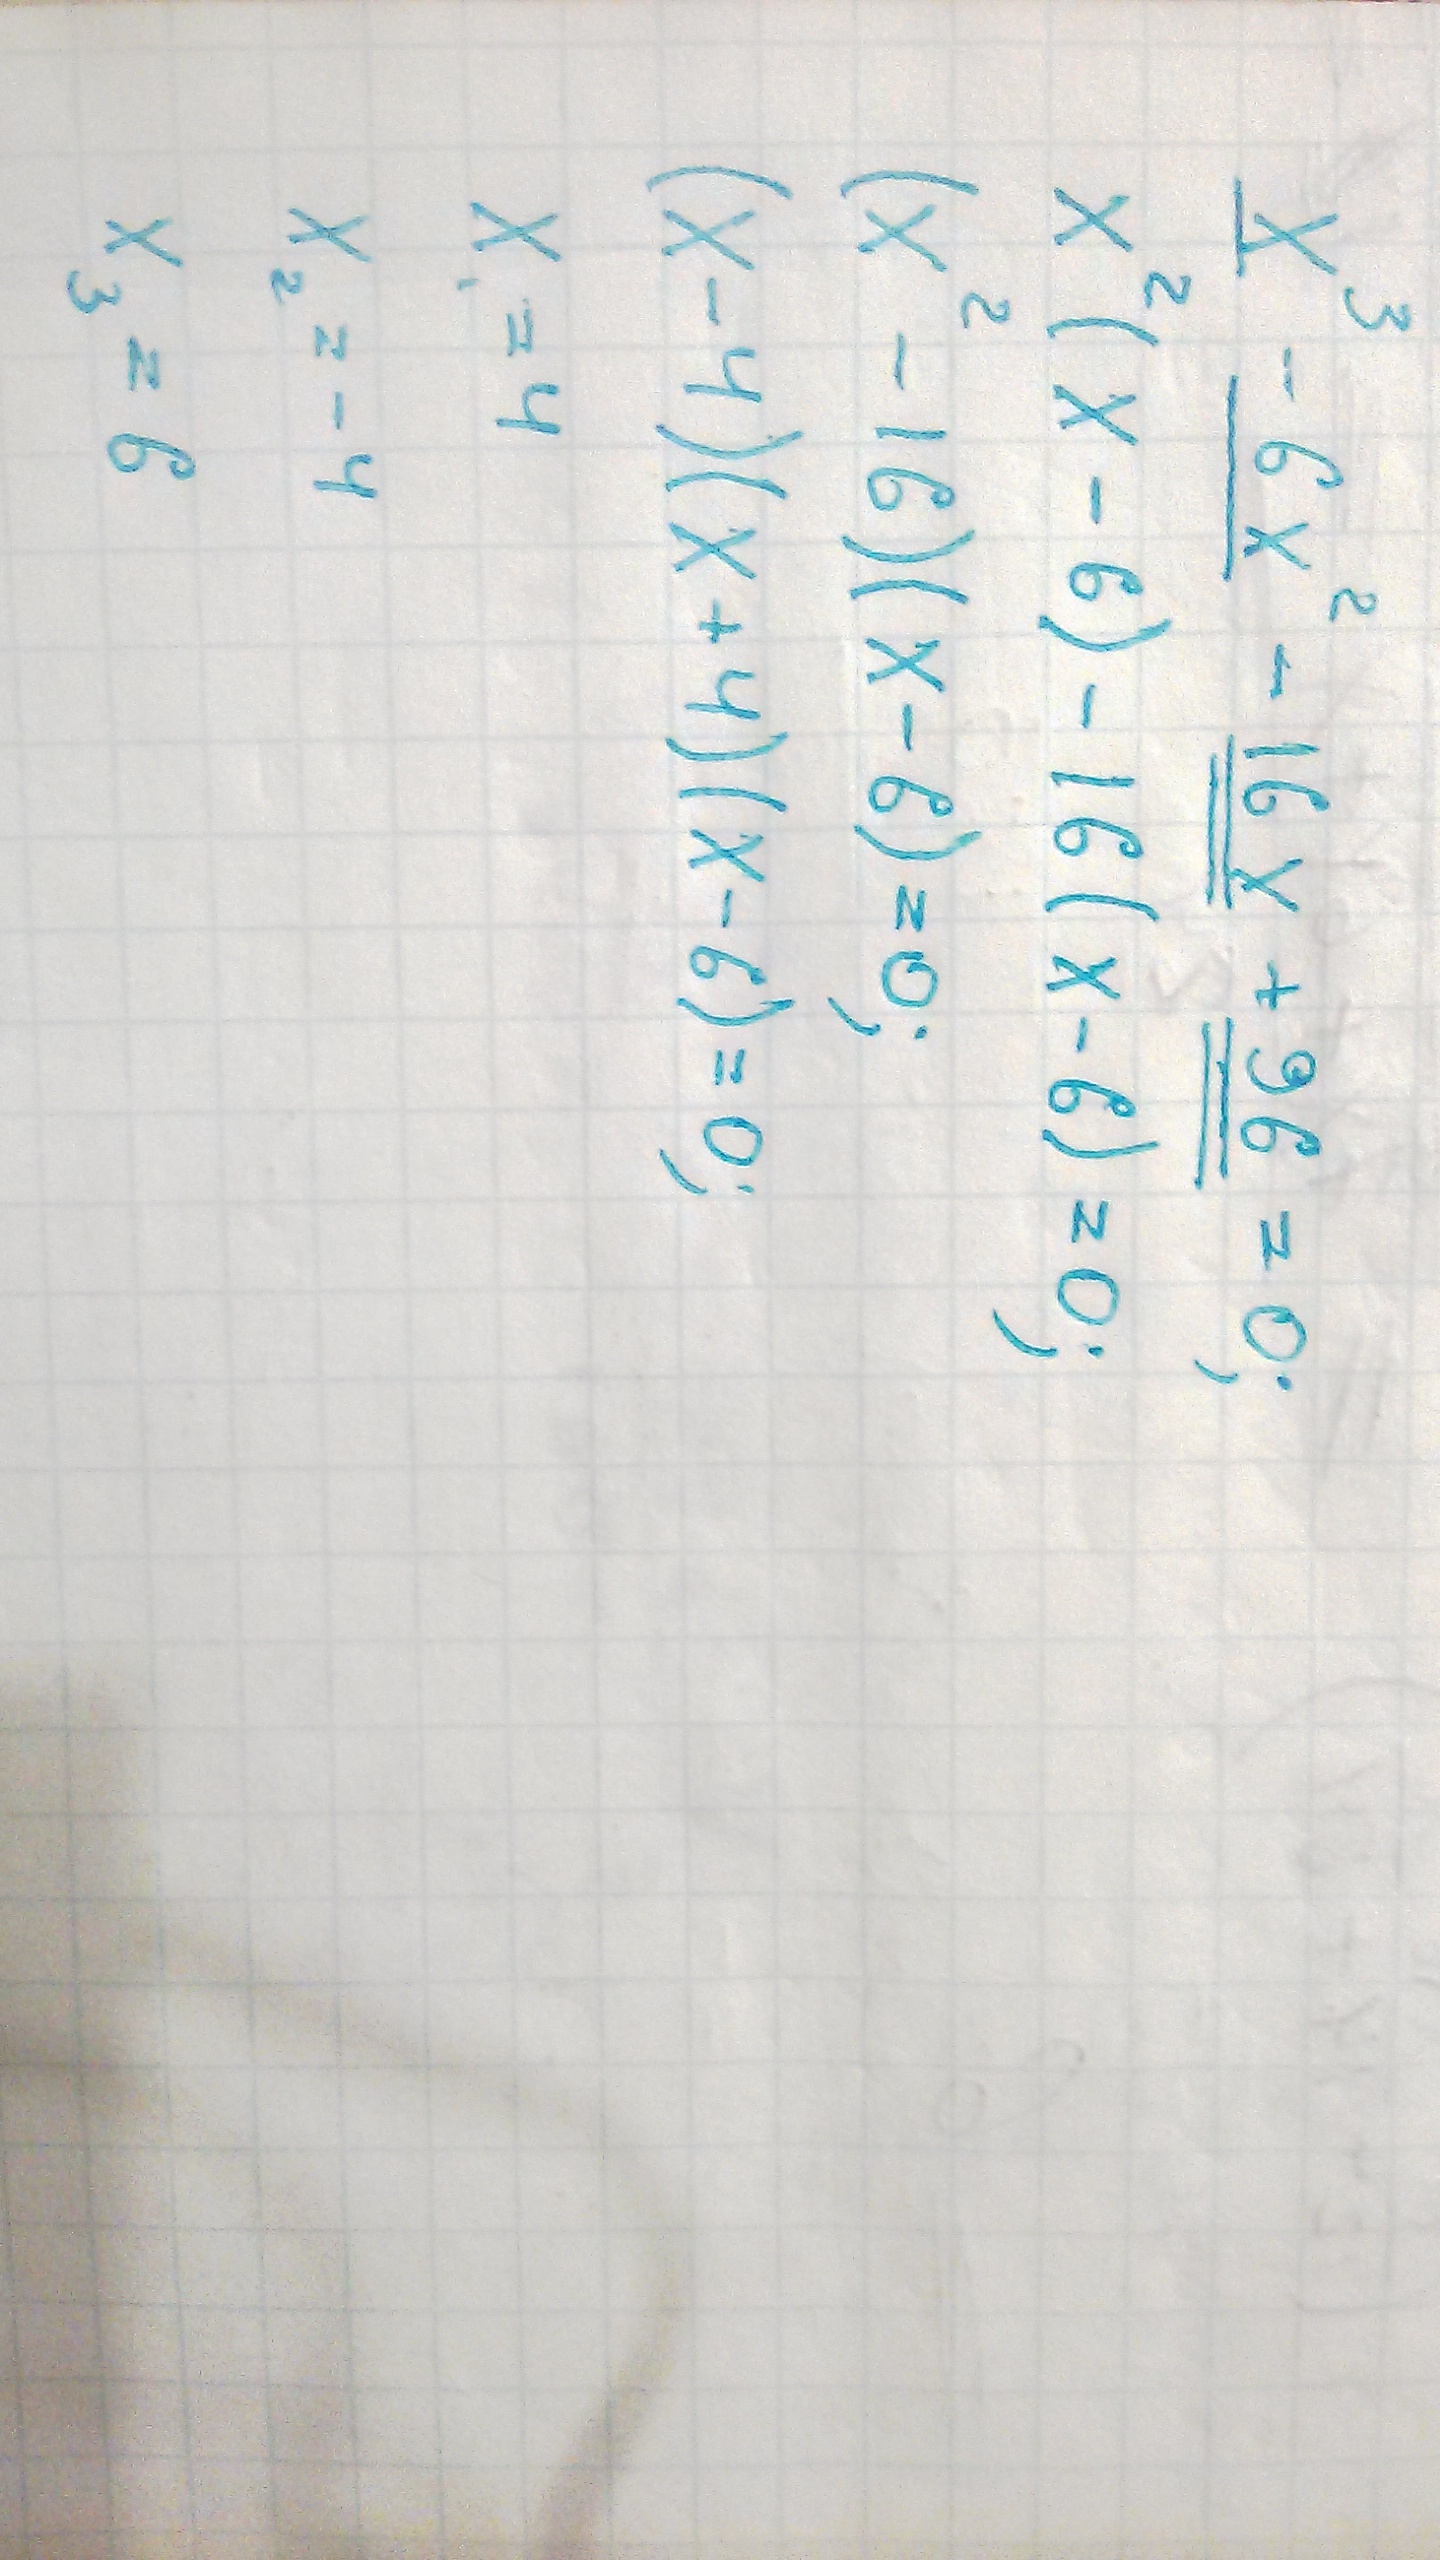 x³ - 6x² - 16x + 96 = 0;
x²(x - 6) - 16(x - 6) = 0;
(x² - 16)(x - 6) = 0;
(x - 4)(x + 4)(x - 6) = 0;
x₁ = 4
x₂ = -4
x₃ = 6